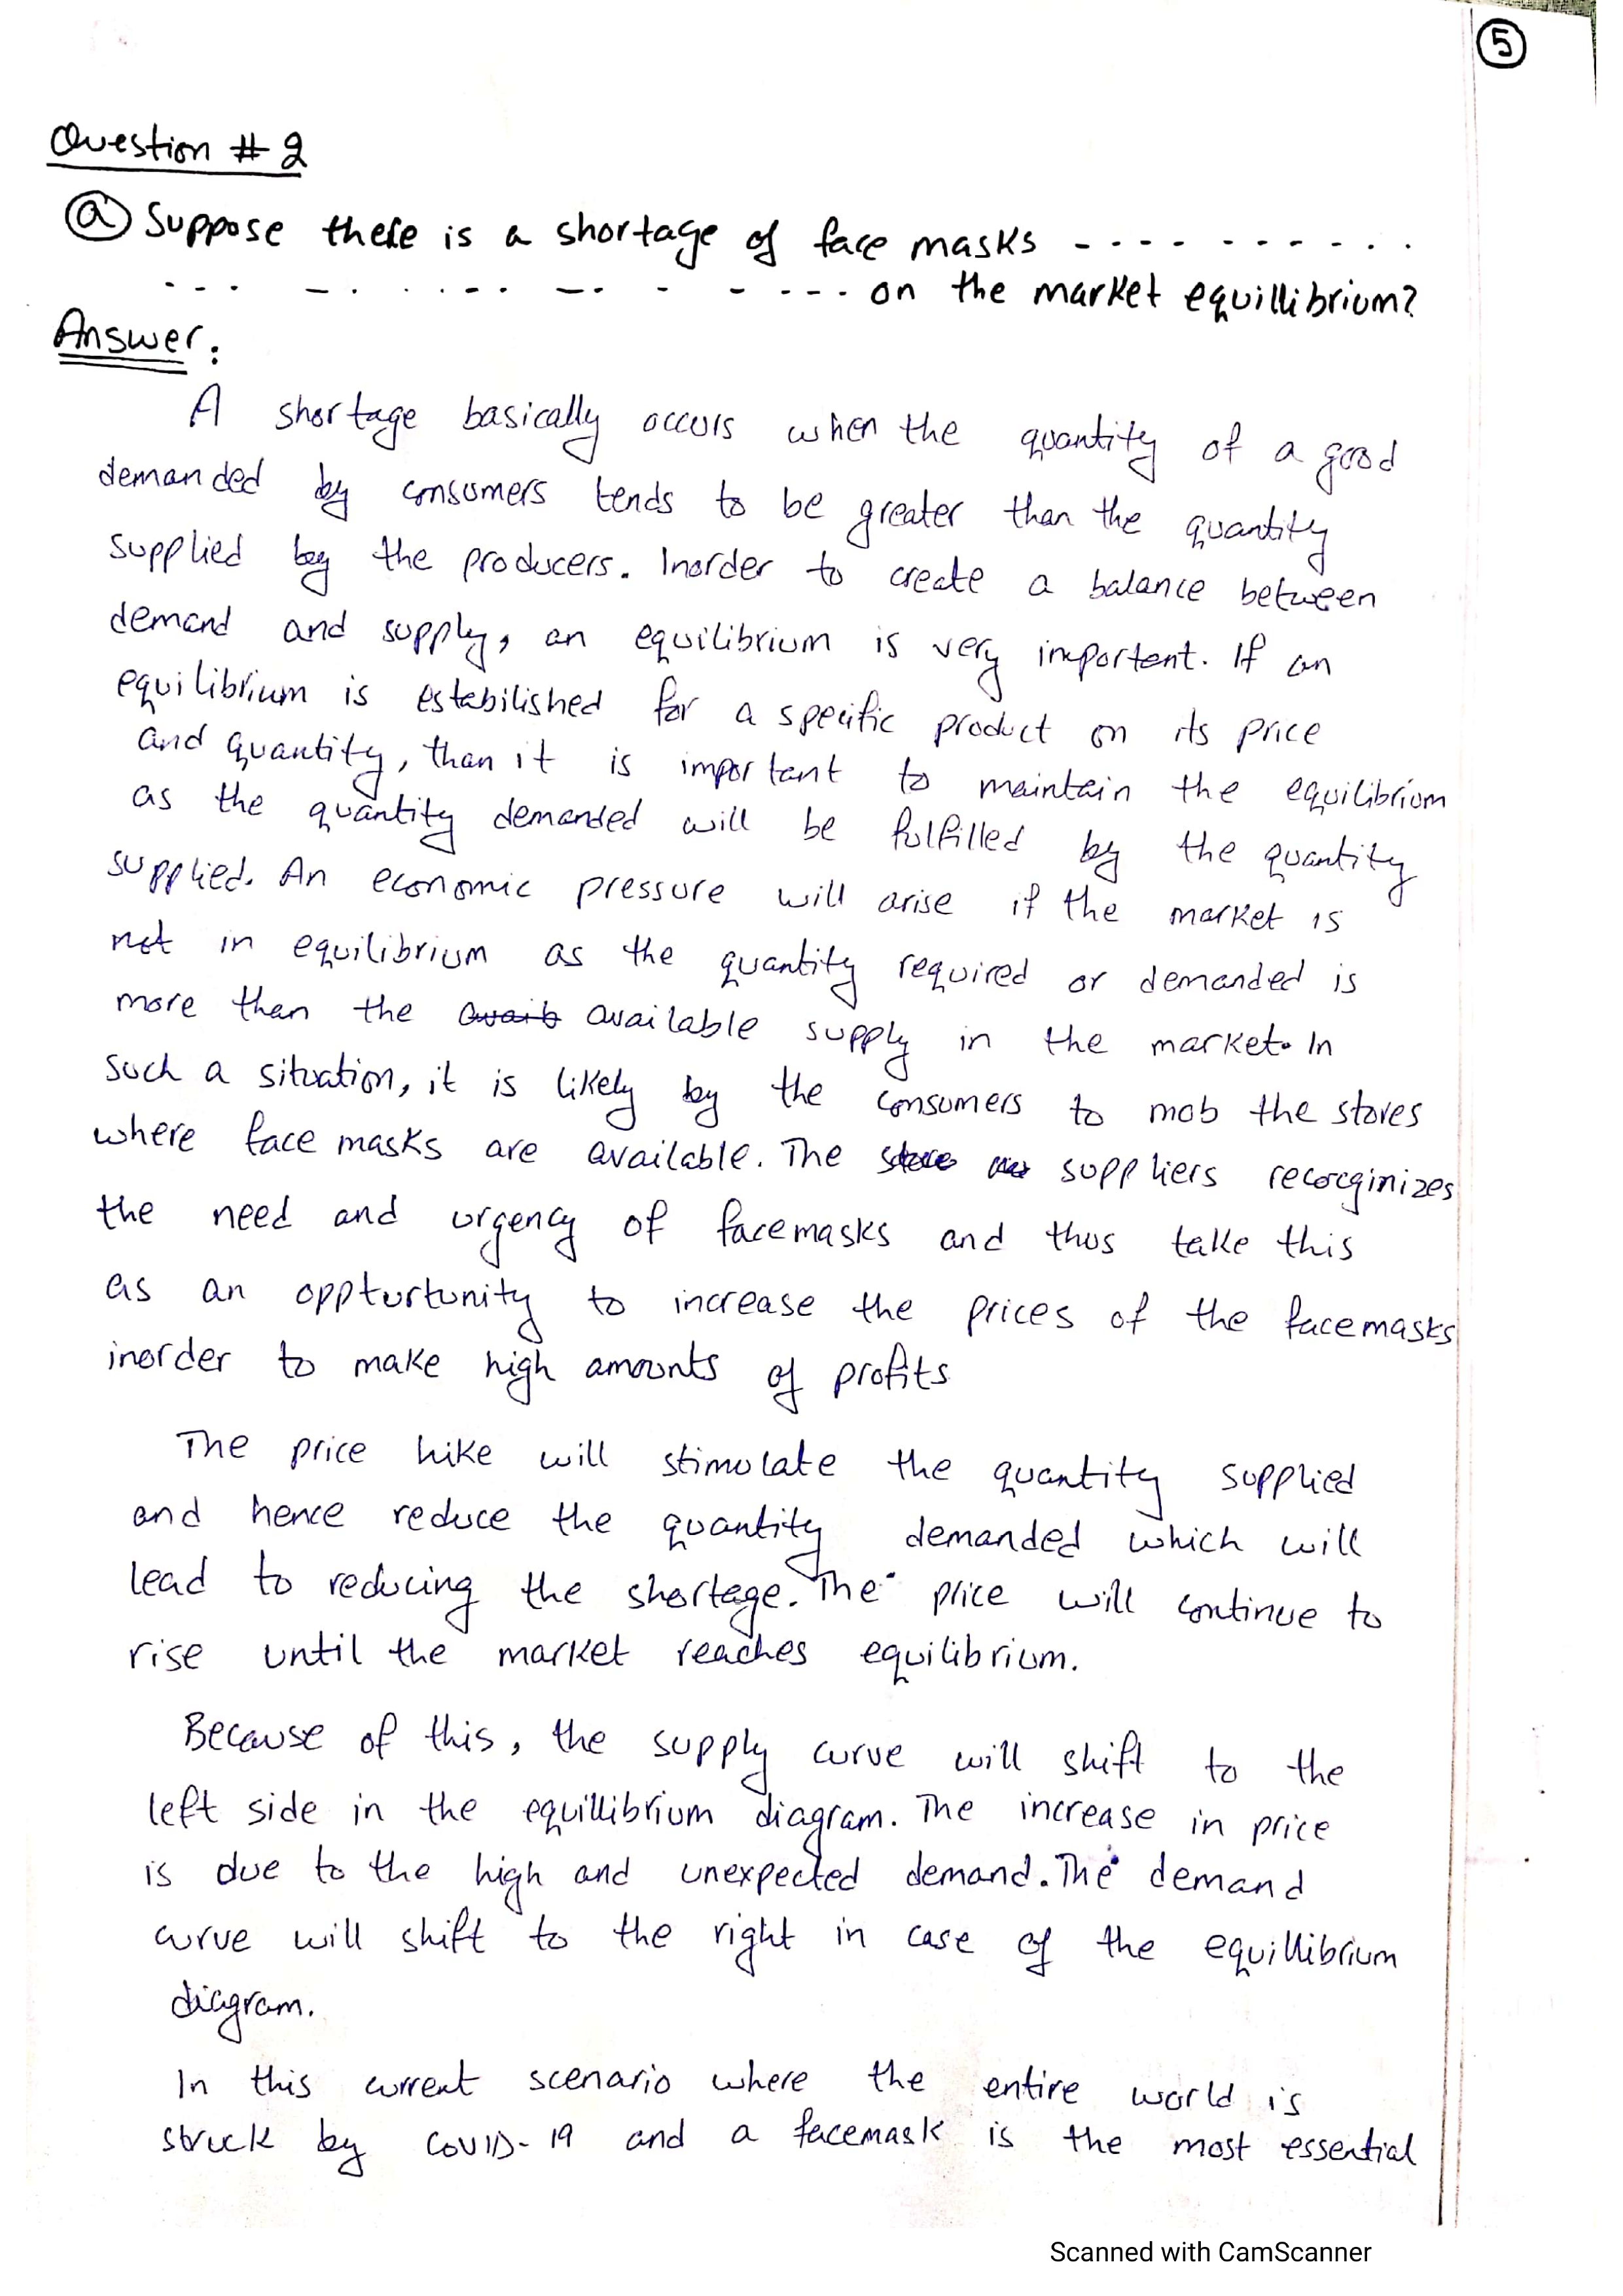 5
Question # 2
a Suppose there is a shortage of face masks - - - - - - - - - - .
- - - - - . . - - - - - - - - - - - on the market equillibrium?
Answer:
A shortage basically occurs when the quantity of a good
demanded by consumers tends to be greater than the quantity
supplied by the producers. Inorder to create a balance between
demand and supply, an equilibrium is very important. If an
equilibrium is estabilished for a specific product on its price
and quantity, than it is important to maintain the equilibrium
as the quantity demanded will be fulfilled by the quantity
supplied. An economic pressure will arise if the market is
not in equilibrium as the quantity required or demanded is
more than the available supply in the market. In
such a situation, it is likely by the consumers to mob the stores
where face masks are available. The suppliers recorginizes
the need and urgency of facemasks and thus take this
as an oppturtunity to increase the prices of the facemasks
inorder to make high amounts of profits
The price hike will stimulate the quantity supplied
and hence reduce the quantity demanded which will
lead to reducing the shortage. The price will continue to
rise until the market reaches equilibrium.
Because of this, the supply curve will shift to the
left side in the equillibrium diagram. The increase in price
is due to the high and unexpected demand. The demand
curve will shift to the right in case of the equillibrium
diagram.
In this current scenario where the entire world is
struck by COVID-19 and a facemask is the most essential
Scanned with CamScanner